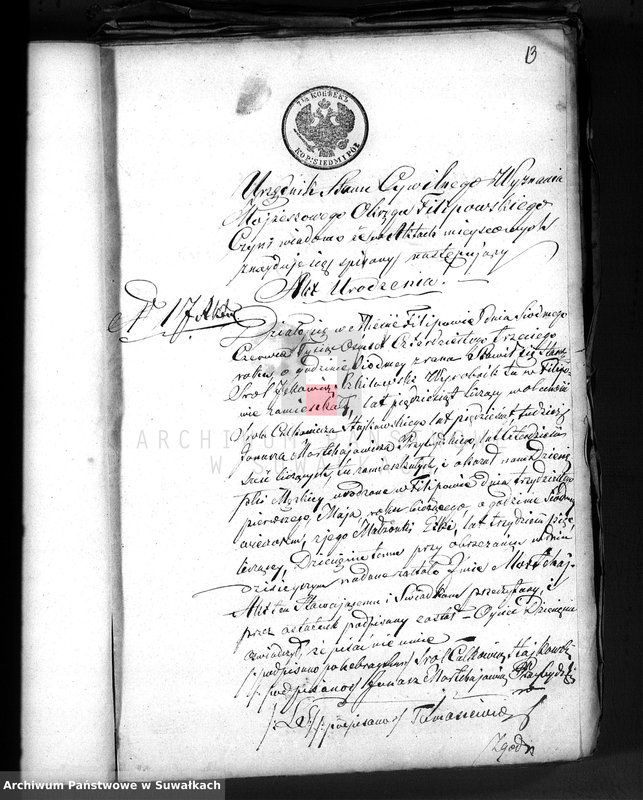 13
7½ КОПѢЕКЪ
KOP: SIEDM I PÓŁ
Urzędnik Stanu Cywilnego Wyznania
Mojżeszowego Okręgu Filipowskiego
Czyni wiadomo iż w Aktach miejscowych
znajduje się spisany następujący
Akt Urodzenia.
N 17
Działo się w Mieście Filipowie dnia Siódmego
Czerwca Tysiąc Osmset Czterdziestego trzeciego
roku, o godzinie Siódmey z rana stawił się Stary
Srol Wyrobnik tu w Filipo
wie zamieszkały, lat pięćdziesiąt liczący w obecności
Srola Calkowicza Hajkowskiego lat pięćdziesiąt tudzież
Janasa Mortchajowicza Przybylskiego, lat czterdzieści
liczących, tu zamieszkałych, i okazał nam Dziecię
płci Męzkiey urodzone w Filipowie dnia trzydziestego
pierwszego Maja, roku bieżącego o godzinie Siódmey
wieczorem, z jego Małżonki Etki, lat trzydzieści pięć
liczącey, Dziecięciu temu przy obrzezaniu w dniu
dzisiejszym nadane zostało Imie Mortchaj
Akt ten Stawającemu i Świadkom przeczytany, i
przez ostatnich podpisany został – Ojciec Dziecięcia
oświadczył, iż pisać nie umie
podpisano po hebrajsku Srol Calkowicz Hajkowski
podpisano Janas Mortchajowicz Przybylski
LS podpisano Tomasiewicz
Zgodn
ARCHIWUM PAŃSTWOWE
W SUWAŁKACH
Archiwum Państwowe w Suwałkach